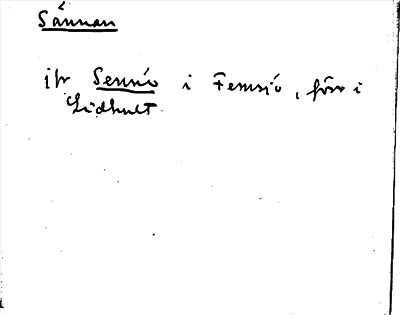 Sånnan
jfr Sennö i Femsjö, förr i
Lidhult